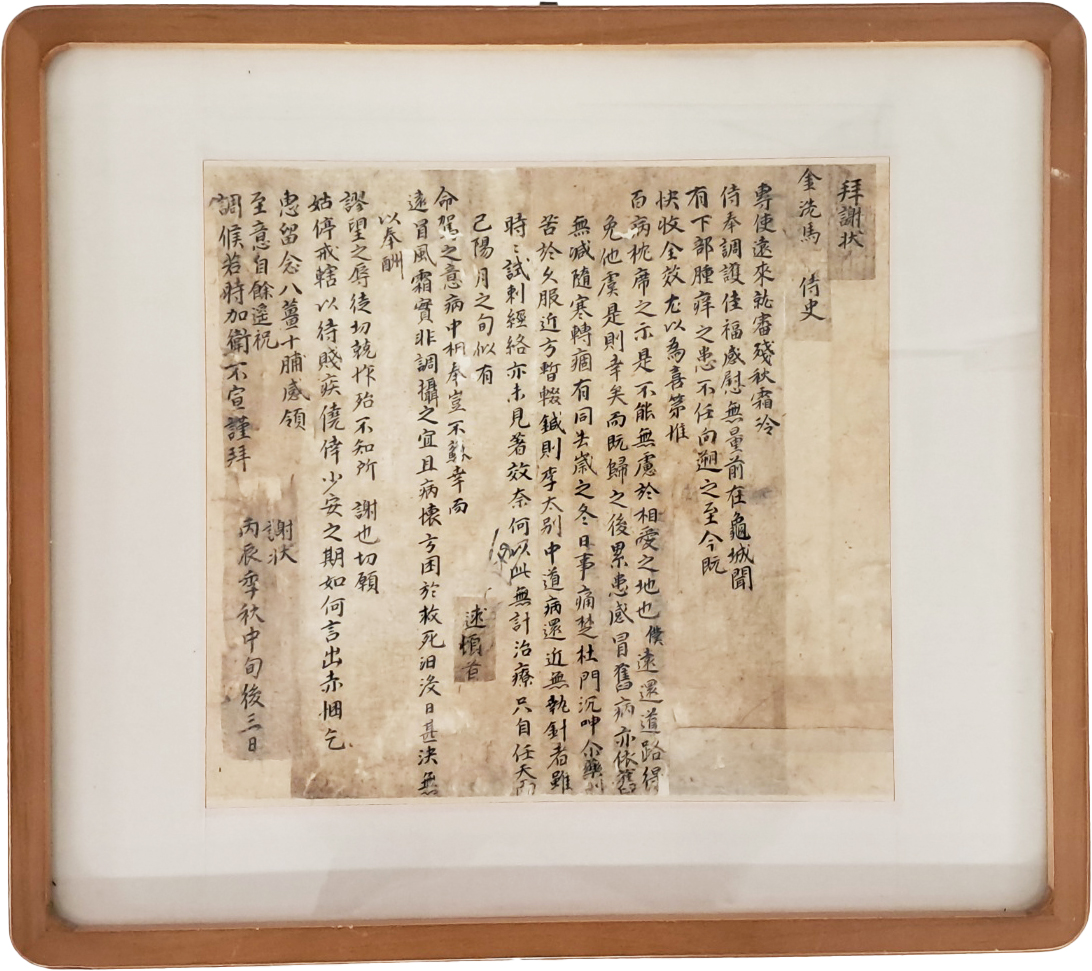 拜謝狀
金洗馬 侍史
專使遠來就審殘秋霜冷
侍奉調護佳福感慰無量前在龜城聞
有下部腫痒之患不任向遡之至今既
快收全效尤以為喜第惟
百病枕席之示是不能無慮於相愛之地也僕遠還道路得
免他虞是則幸矣而既歸之後累患感冒舊病亦依舊
無減隨寒轉痼有同去歲之冬日事痛楚杜門沉呻
苦於久服近方暫輟鍼則李太別中道病還近無執針者雖
時〻試刺經絡亦未見著效奈何以此無計治療只自任天
己陽月之旬似有
命駕之意病中相奉豈不蘇幸而
遠冒風霜實非調攝之宜且病懷方困於救死汩沒日甚決無
以奉酬
謬望之辱徒切兢怍殆不知所 謝也切願
姑停戒轄以待賤疾僥倖少安之期如何言出赤悃乞
惠留念八薑十脯感領
至意自餘遙祝
調候若時加衛不宣謹拜
謝狀
丙辰季秋中旬後三日
速頓首